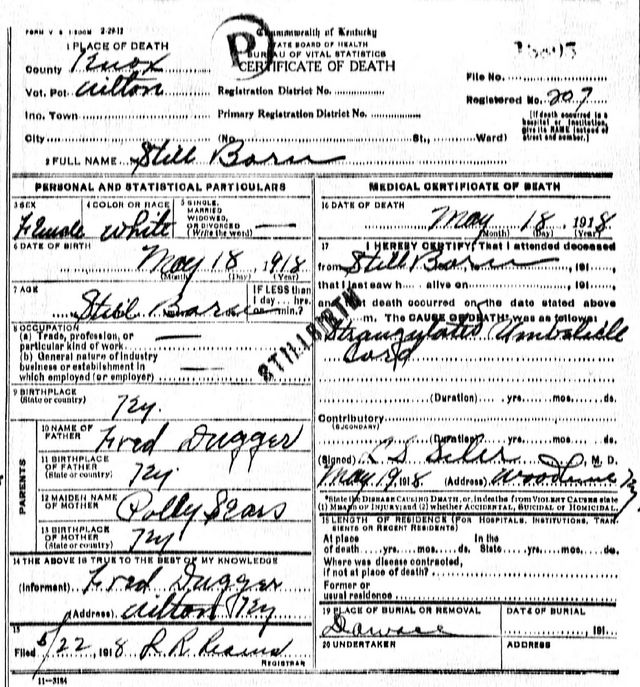 FORM V. S. 1-500M 2-29-12
Commonwealth of Kentucky
STATE BOARD OF HEALTH
BUREAU OF VITAL STATISTICS
CERTIFICATE OF DEATH
P
1 PLACE OF DEATH
County Knox
Vot. Pct Wilton
Registration District No.
File No.
Registered No. 207
Ino. Town
Primary Registration District No.
[If death occurred in a hospital or institution, give its NAME instead of street and number.]
City (No. St., Ward)
2 FULL NAME Still Born
PERSONAL AND STATISTICAL PARTICULARS
3 SEX Female
4 COLOR OR RACE White
5 SINGLE, MARRIED WIDOWED, OR DIVORCED (Write the word)
6 DATE OF BIRTH May 18, 1918
(Month) (Day) (Year)
7 AGE Still Born
IF LESS than 1 day... hrs. or min.?
8 OCCUPATION
(a) Trade, profession, or particular kind of work
(b) General nature of industry business or establishment in which employed (or employer)
STILLBIRTH
9 BIRTHPLACE (State or country) Ky.
PARENTS
10 NAME OF FATHER Fred Dugger
11 BIRTHPLACE OF FATHER (State or country) Ky.
12 MAIDEN NAME OF MOTHER Polly Sears
13 BIRTHPLACE OF MOTHER (State or country) Ky
14 THE ABOVE IS TRUE TO THE BEST OF MY KNOWLEDGE
(Informant) Fred Dugger
(Address) Wilton Ky
15
Filed 5/22, 1918 REGISTRAR
11-3184
MEDICAL CERTIFICATE OF DEATH
16 DATE OF DEATH
May 18, 1918
(Month) (Day) (Year)
17 I HEREBY CERTIFY, That I attended deceased
from Still Born, 191
that I last saw h alive on, 191
and that death occurred on the date stated above
m. The CAUSE OF DEATH was as follows:
Strangulated Umbalicle
Cord
(Duration) yrs. mos. ds.
Contributory
(SECONDARY)
(Duration) yrs. mos. ds.
(Signed) L S Siler, M. D.
May 19, 1918 (Address) Woodbine Ky
*State the DISEASE CAUSING DEATH, or, in deaths from VIOLENT CAUSES state (1) MEANS OF INJURY; and (2) whether ACCIDENTAL, SUICIDAL or HOMICIDAL.
18 LENGTH OF RESIDENCE (FOR HOSPITALS, INSTITUTIONS, TRANSIENTS OR RECENT RESIDENTS)
At place of death yrs. mos. ds. In the State yrs. mos. ds.
Where was disease contracted, if not at place of death?
Former or usual residence
19 PLACE OF BURIAL OR REMOVAL
DATE OF BURIAL
, 191
20 UNDERTAKER
ADDRESS